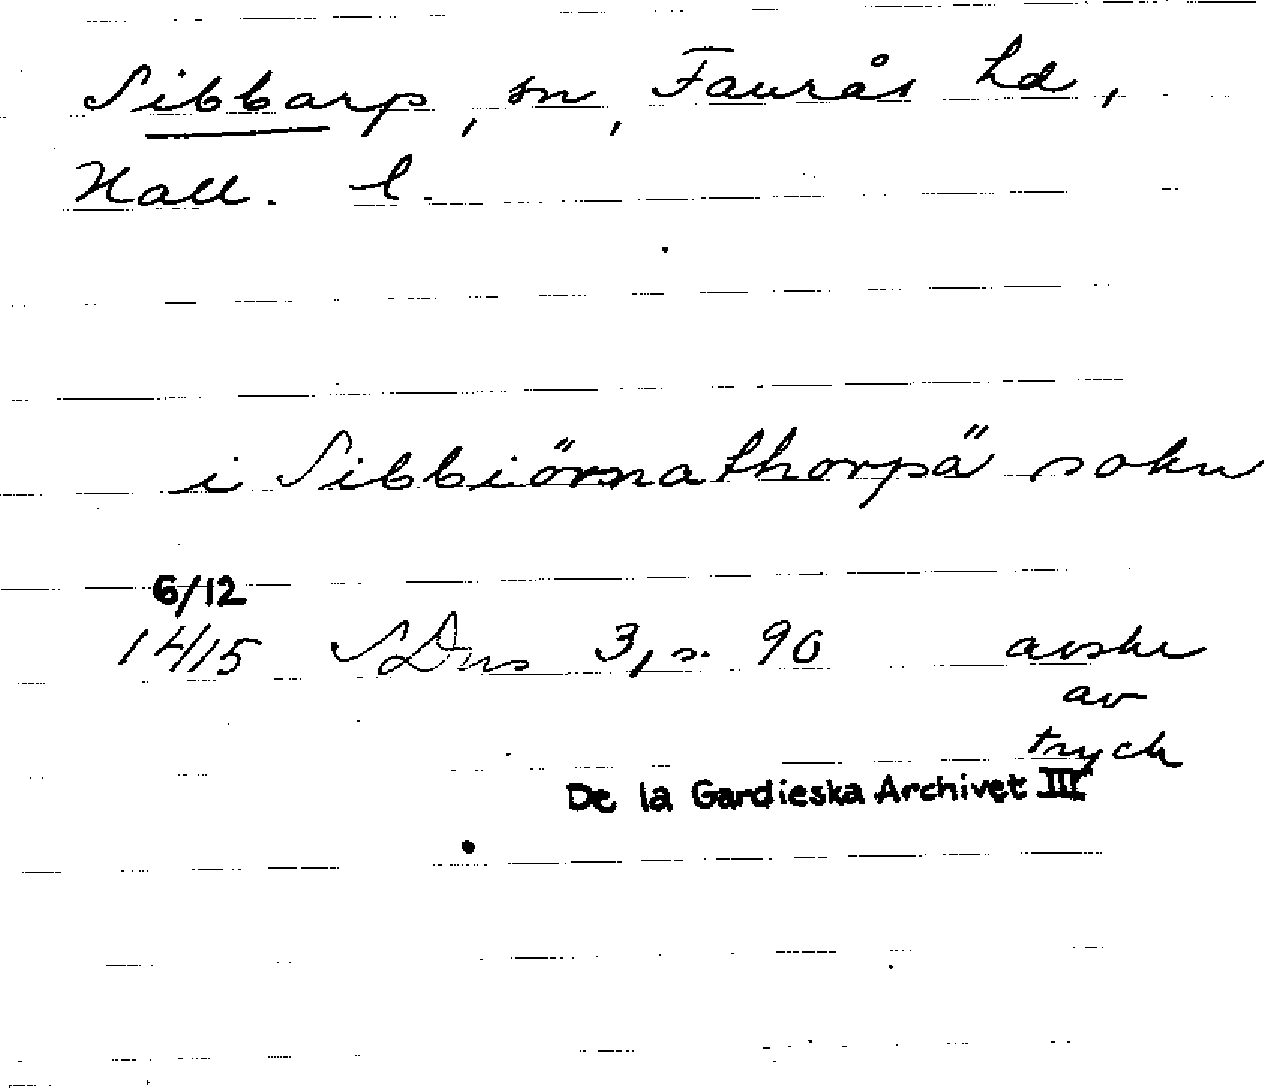 Sibbarp, sn, Faurås hd,
Hall. l.
i Sibbiörnathorpä sokn
6/12
1415 SDns 3, s. 90 avskr
av
tryck
De la Gardieska Archivet III